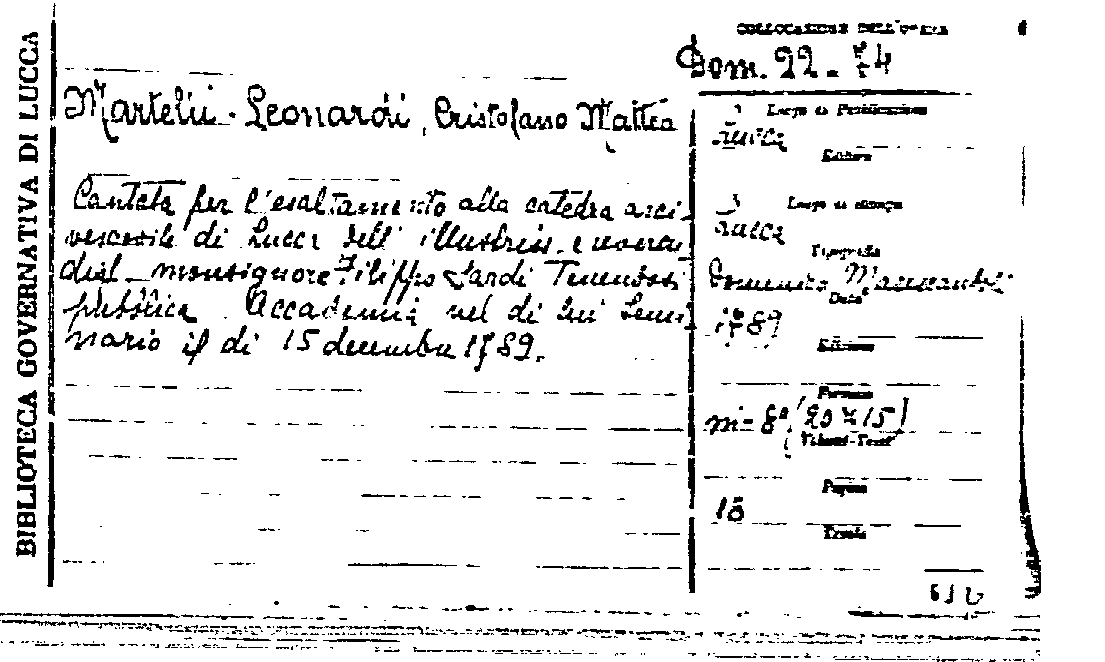 BIBLIOTECA GOVERNATIVA DI LUCCA
COLLOCAZIONE DELL'OPERA
Dom. 22 - 74
Martelli-Leonardi, Cristofano Matteo
Cantata per l'esaltamento alla catedra arci-
vescovile di Lucca dell' illustris. e reveren-
diss. monsignore Filippo Sardi Tenendosi
pubblica Accademia nel di lui Semi-
nario il dì 15 decembre 1789.
Luogo di Pubblicazione
Lucca
Editore
Luogo di stampa
Lucca
Tipografia
Domenico Marescandoli
Data
1789
Edizione
Formato
in-8º (20 x 15)
Volumi-Tomi
Pagine
Tavole